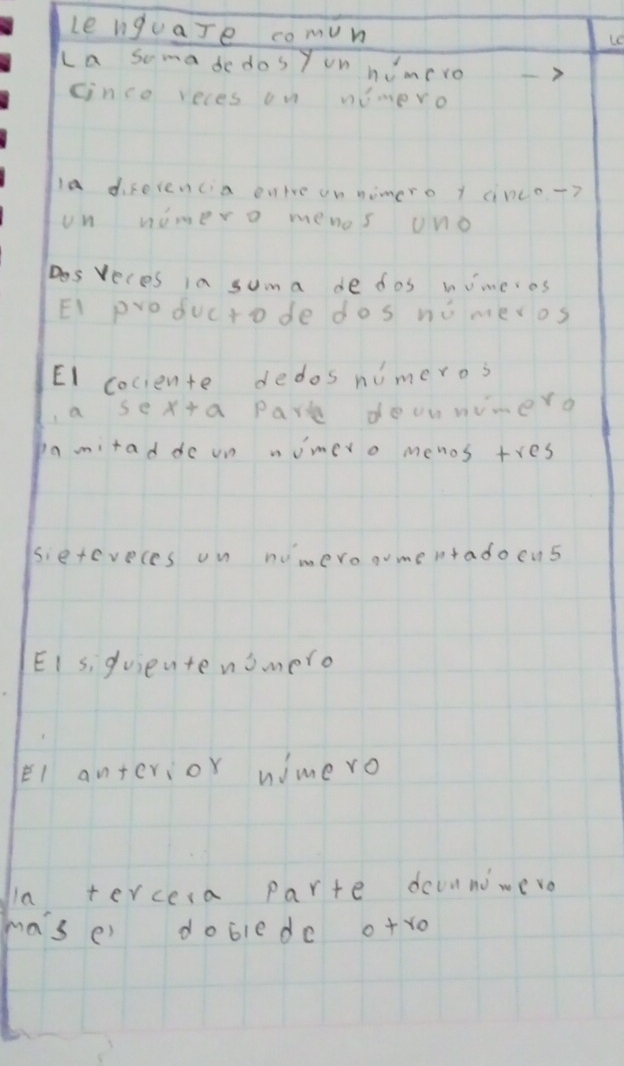 lenguaje común
La suma de dos y un número ->
cinco veces un número
la diferencia entre un número y cinco ->
un número menos uno
Dos veces la suma de dos números
El producto de dos números
El cociente de dos números
la sexta parte de un número
la mitad de un número menos tres
siete veces un número aumentado en 5
El siguiente número
El anterior número
la tercera parte de un número
más el doble de otro